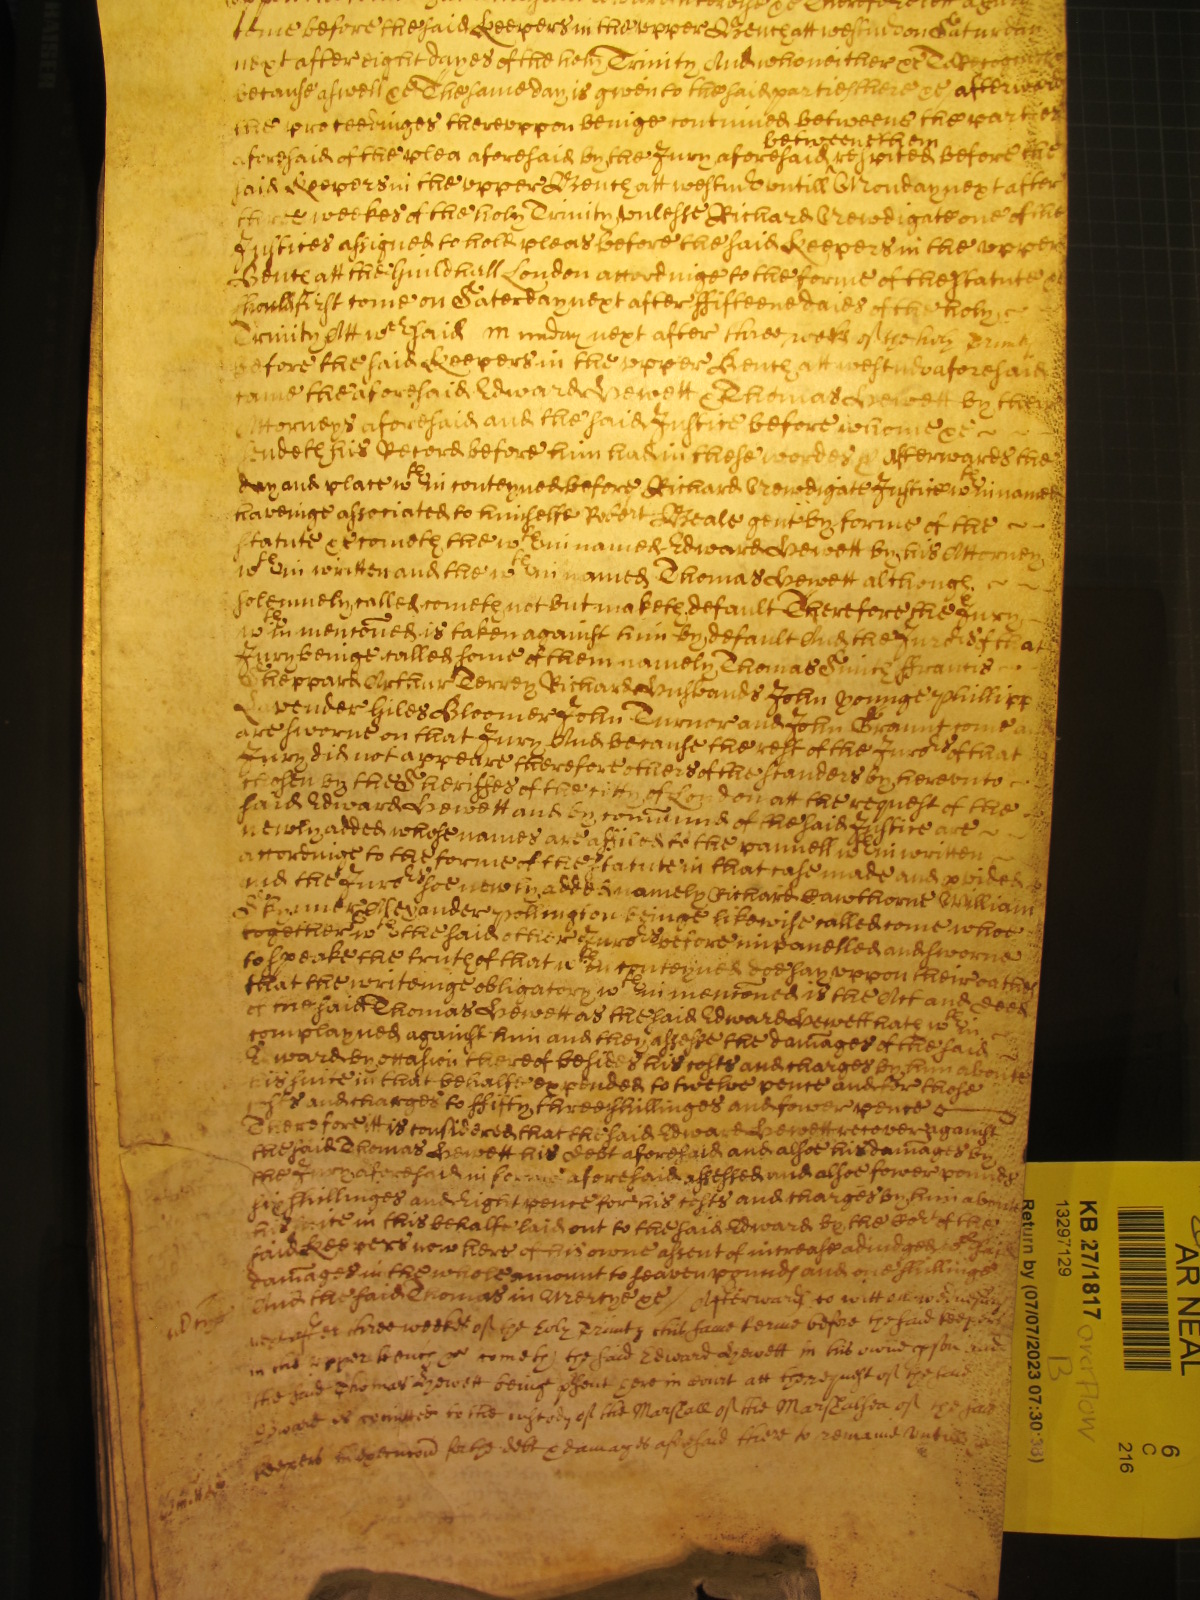 tyme before the said Keepers in the upper Bench att westmr on Saturday
next after eight dayes of the holy Trinity And who neither &c To Recognize
because aswell &c The same day is given to the said parties there &c afterwards
the proceedinges thereuppon beinge continued betweene the parties
betweene them
aforesaid of the plea aforesaid by the Jury aforesaid respited before the
said Keepers in the upper Bench att westmr untill Monday next after
three weekes of the holy Trinity unlesse Richard Newdigate one of the
Justices assigned to hold pleas before the said Keepers in the upper
Bench att the Guildhall London accordinge to the forme of the statute &c
should first come on Saterday next after ffifteene daies of the holy
Trinity Att wch said monday next after three weeks of the holy Trinity
before the said Keepers in the upper Bench att westmr aforesaid
came the aforesaid Edward Hewett & Thomas Hewett by their
Attorneys aforesaid and the said Justice before whome &c
sendeth his Record before him had in these wordes Afterwardes the
day and place wthin conteyned before Richard Newdigate Justice wthin named
haveinge associated to himselfe Robert Beale gent by forme of the
statute &c cometh the wthin named Edward Hewett by his Attorney
wthin written and the wthin named Thomas Hewett although
solemnely called cometh not but maketh default Therefore the Jury
wthin mencōned is taken against him by default And the Jurors of that
Jury beinge called some of them namely Thomas Smith ffrancis
Sheppard Arthur Terrey Richard Husbands John Younge Phillipp
Lavender Giles Bloomer John Turnor and John Graunt come and
are sworne on that Jury And because the rest of the Jurors of that
Jury did not appeare therefore others of the standers by hereunto
chosen by the Sheriffes of the citty of London att the request of the
said Edward Hewett and by cōmand of the said Justice are
newly added whose names are affiled to the pannell wthin written
accordinge to the forme of the statute in that case made and pvided
and the Jurors soe newly added namely Richard Hawthorne William
Skynner Alexander Pollington beinge likewise called come whoe
together wth the said other Jurors before impanelled and sworne
to speake the truth of that wthin conteyned doe say uppon their oathes
that the writeinge obligatory wthin mencōned is the Act and deed
of the said Thomas Hewett as the said Edward Hewett hath wthin
complayned against him and they assesse the damages of the said
Edward by occasion thereof besides his costs and charges by him aboute
his suite in that behalfe expended to twelve pence and for those
costs and charges to ffifty three shillinges and fower pence
Therefore itt is considered that the said Edward Hewett recover against
the said Thomas Hewett his debt aforesaid and alsoe his damages by
the Jury aforesaid in forme aforesaid assessed and alsoe fower pounds
six shillinges and Eight pence for his costs and charges by him aboute
his suite in this behalfe laid out to the said Edward by the Cort of the
said Keepers now here of his owne assent of increase adiudged wch said
damages in the whole amount to seaven pounds and one shillinge
And the said Thomas in Mercye &c Afterwards to witt on wednesday
next after three weekes of the holy Trinity this same terme before the said keepers
in the upper bench &c cometh the said Edward Hewett in his owne pson and
the said Thomas Hewett being psent here in Court att the request of the said
Edward is comitted to the custody of the Marshall of the Marshalsea of the said
keepers in execucon for the debt & damages aforesaid there to remaine untill
KB 27/1817
13297129
Return by (07/07/2023 07:30:38)
AR NEAL
6
C
216
overflow
B